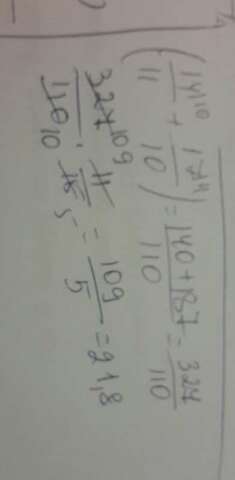 (14¹⁰/11 + 17¹¹/10) = 140+187/110 = 327/110
327¹⁰⁹/110₁₀ · 11/15₅ = 109/5 = 21,8